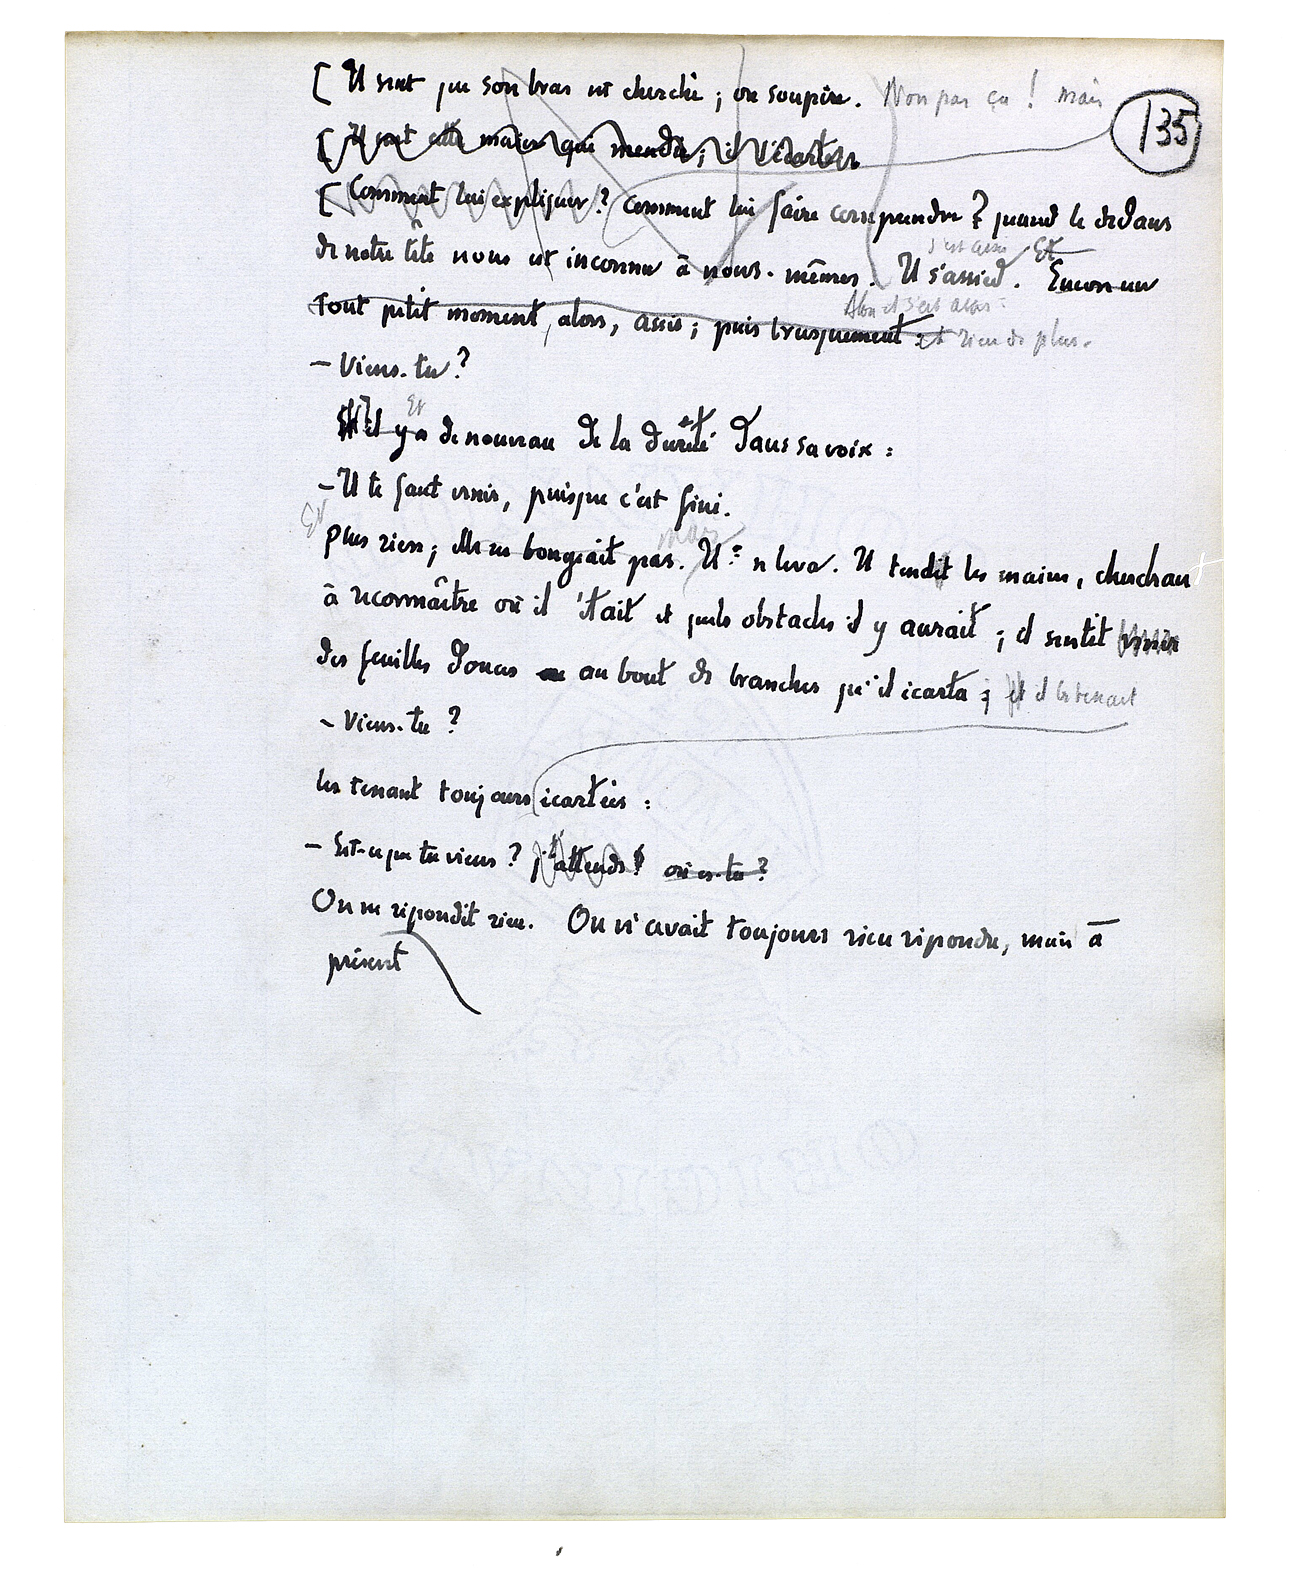 [ Il sent que son bras est cherché ; on soupire. Non pas ça ! mais
135
[ Il sent cette main qui mendie ; il l'écarte
[ Comment lui expliquer ? Comment lui faire comprendre ? quand le dedans
de notre tête nous est inconnu à nous-mêmes. Il s'assied. Et Encore un
s'est assis
Alors il s'est assis
tout petit moment, alors, assis ; puis brusquement : et rien de plus.
– Viens-tu ?
Et
il y a de nouveau de la dureté dans sa voix :
– Il te faut venir, puisque c'est fini.
Et mais
Plus rien ; elle ne bougeait pas. Il se leva. Il tendit les mains, cherchant
à reconnaître où il était et quels obstacles il y aurait ; il sentit venir
des feuilles douces au bout de branches qu'il écarta ; et il les tenait
– Viens-tu ?
les tenant toujours écartées :
– Est-ce que tu viens ? j't'attends ! où es-tu ?
On ne répondit rien. On n'avait toujours rien répondu, mais à
présent